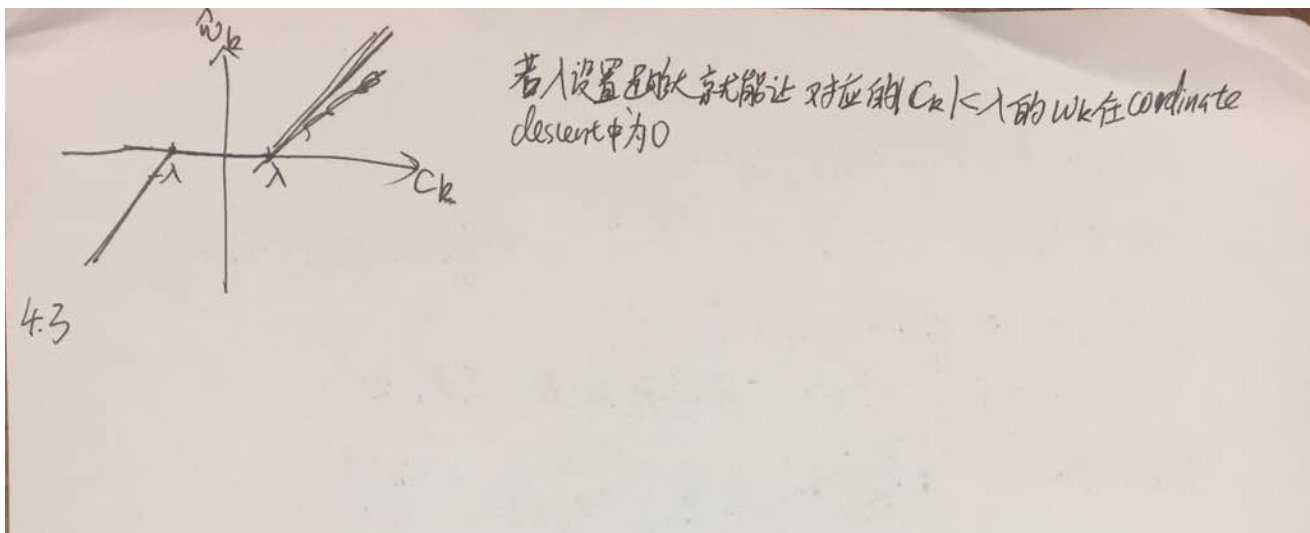 ŵk
若λ设置足够大就能让对应的|Ck|<λ的wk在cordinate
descent中为0
-λ
λ
Ck
4.3